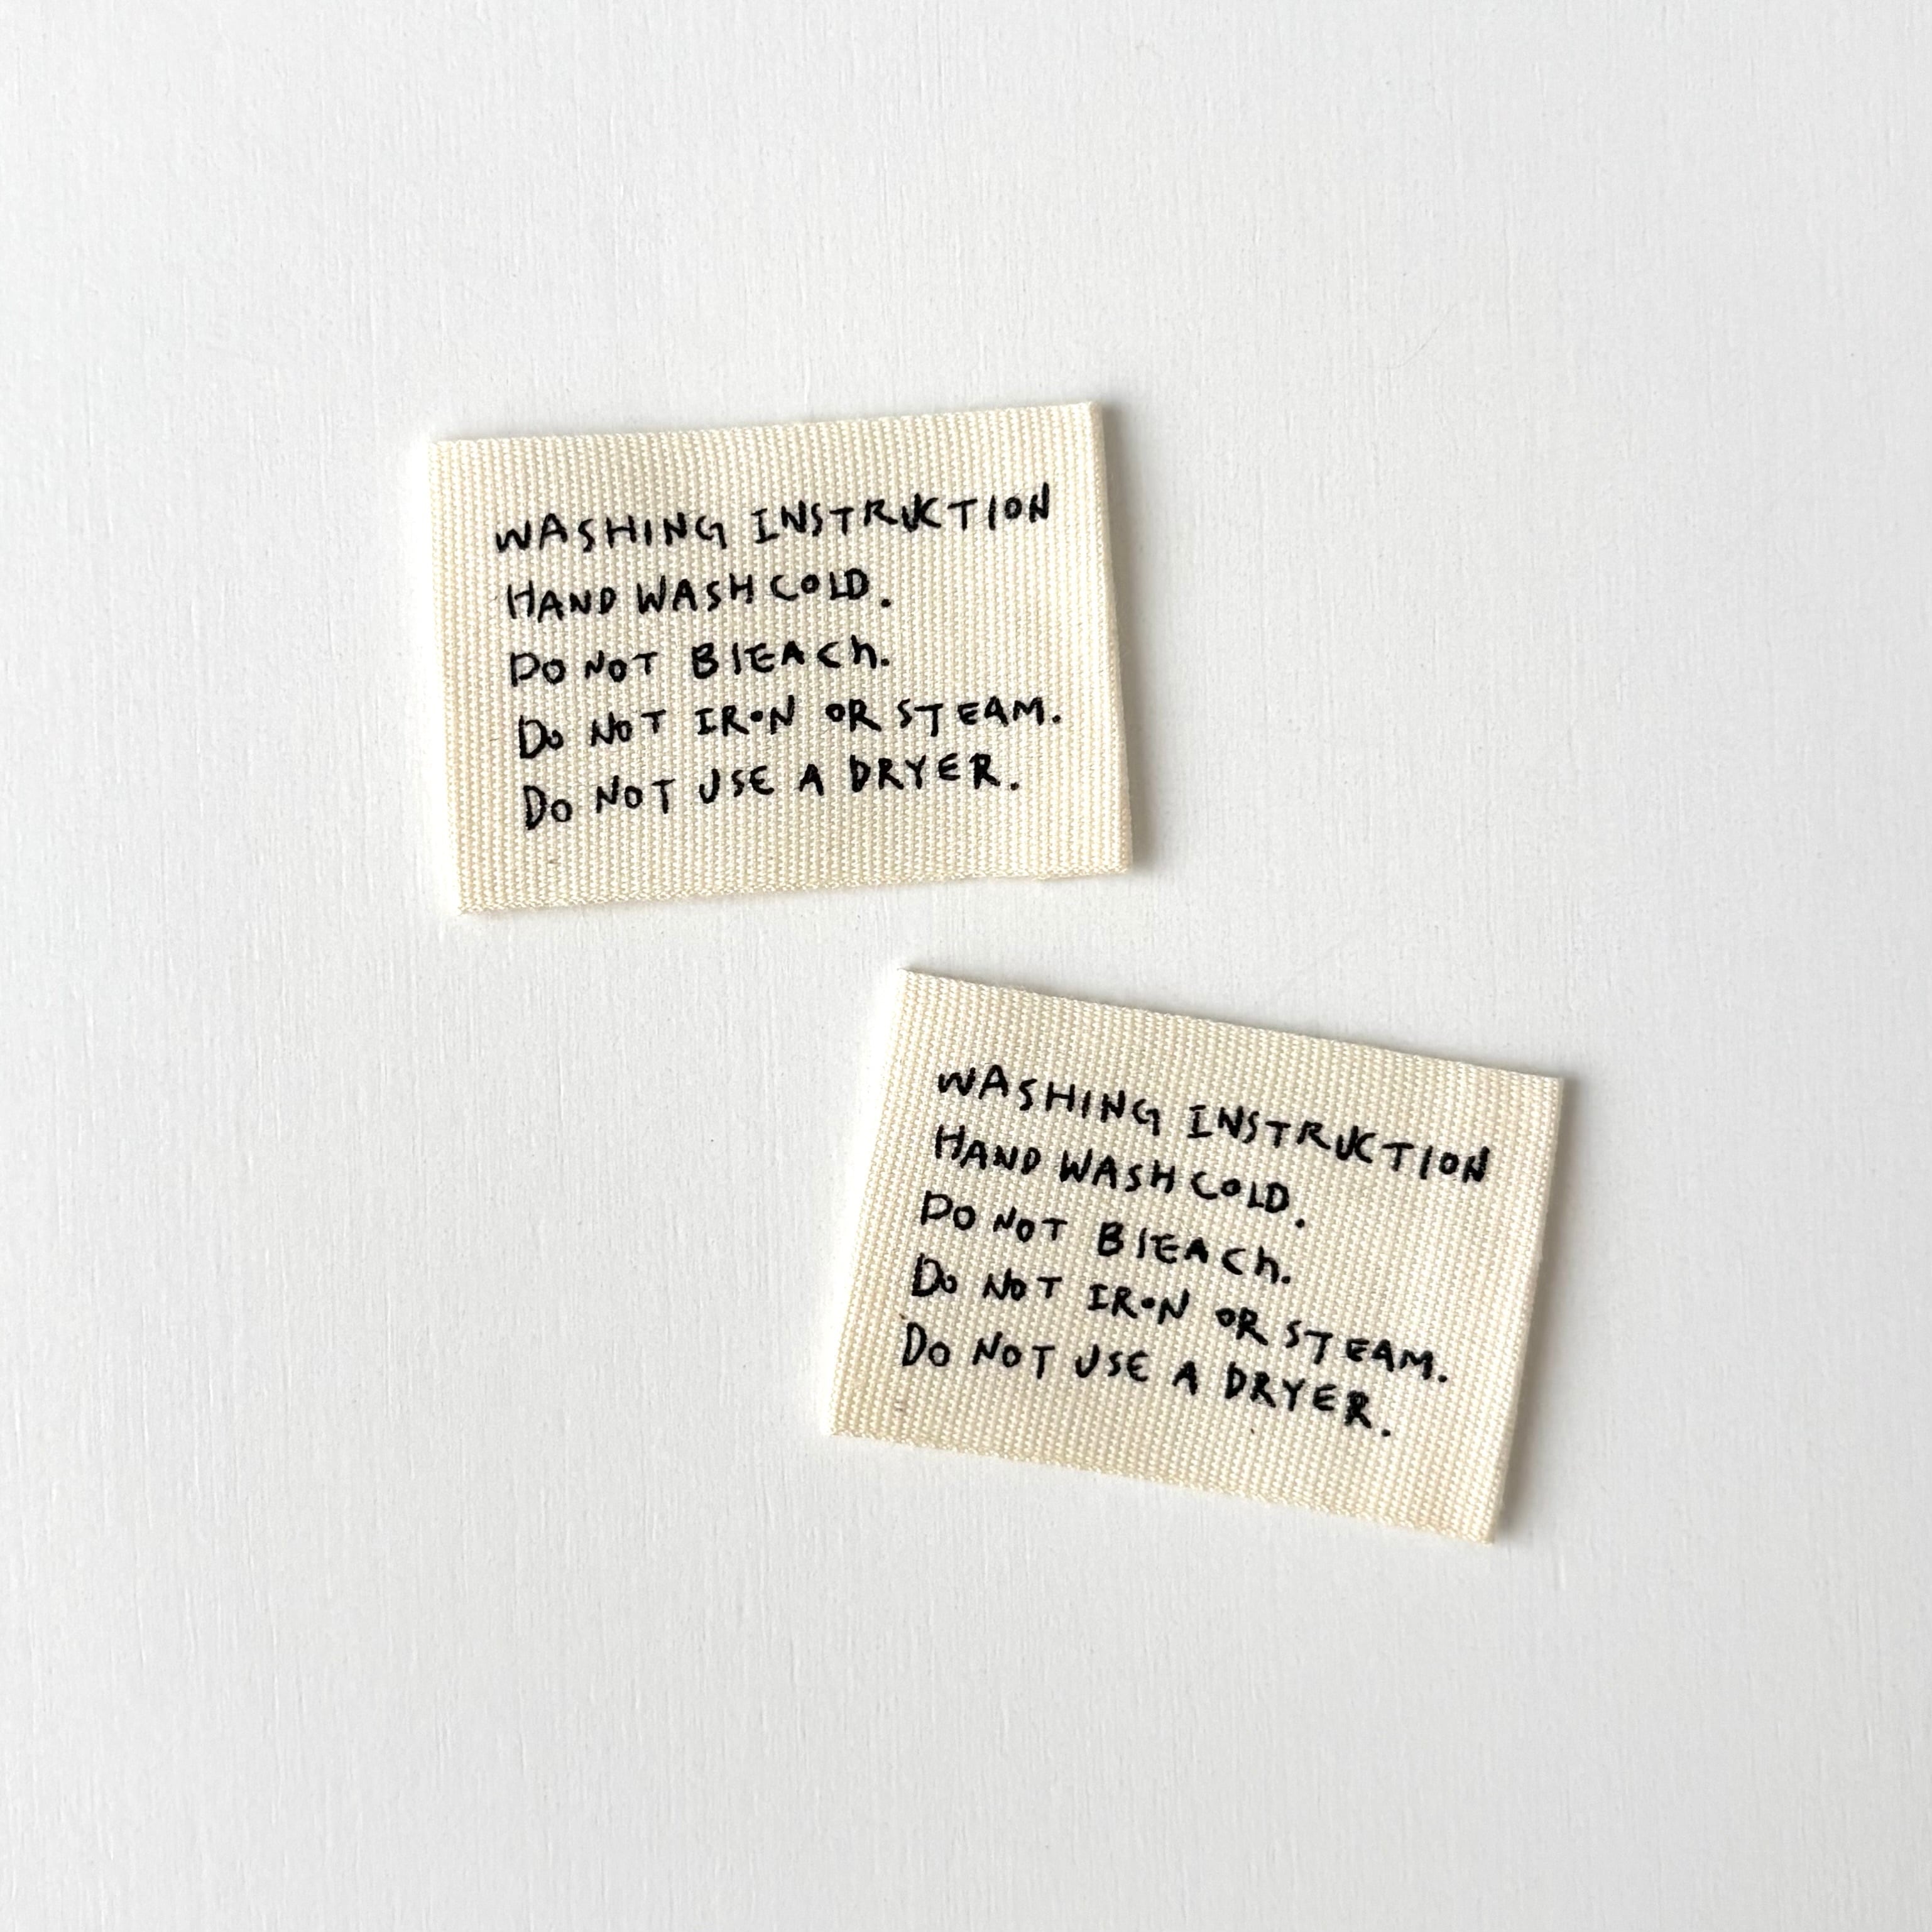 WASHING INSTRUCTION
HAND WASH COLD.
DO NOT BlEACh.
Do NoT IRoN oR STEAM.
Do NoT USE A DRYER.
WASHING INSTRUCTION
HAND WASH COLD.
DO NoT BlEACh.
Do NoT IRoN oR STEAM.
Do NoT USE A DRYER.